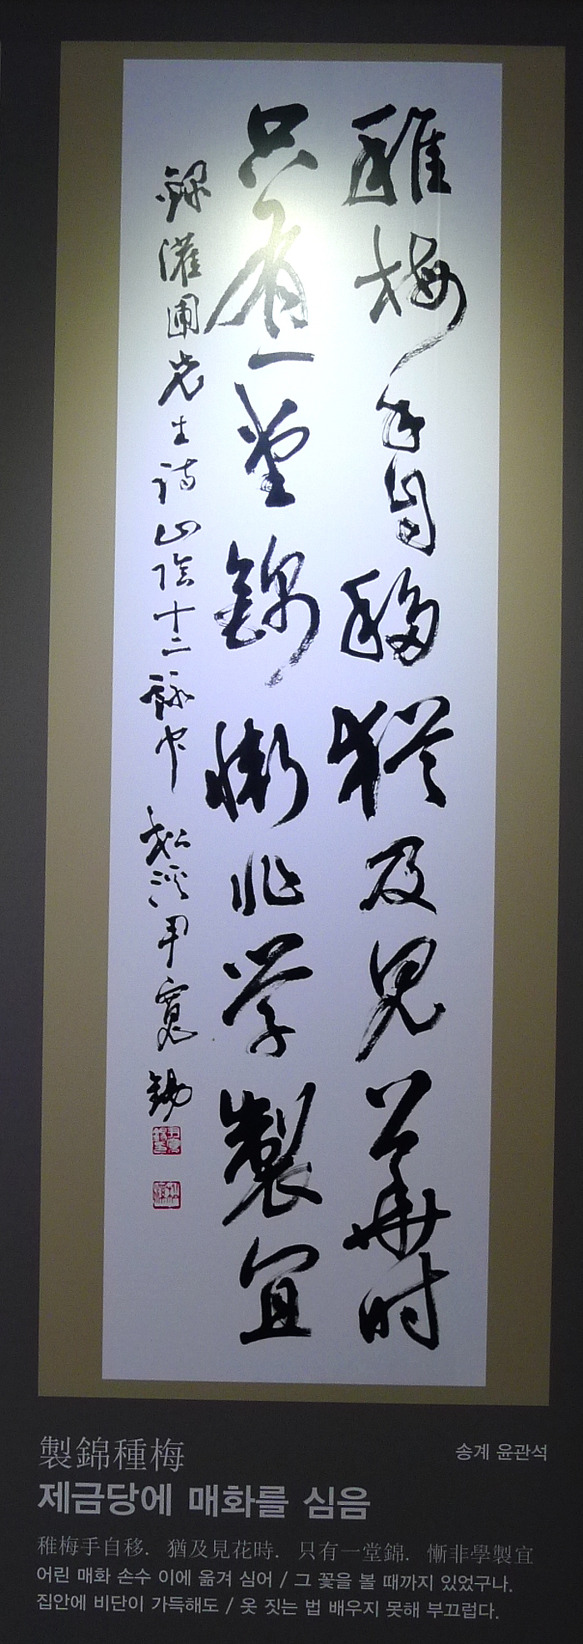 稚梅手自移猶及見華時
只有一堂錦慚非學製宜
錄灌圃先生詩山陰十二詠中 松溪尹寬錫
製錦種梅
송계 윤관석
제금당에 매화를 심음
稚梅手自移. 猶及見花時. 只有一堂錦. 慚非學製宜
어린 매화 손수 이에 옮겨 심어 / 그 꽃을 볼 때까지 있었구나.
집안에 비단이 가득해도 / 옷 짓는 법 배우지 못해 부끄럽다.